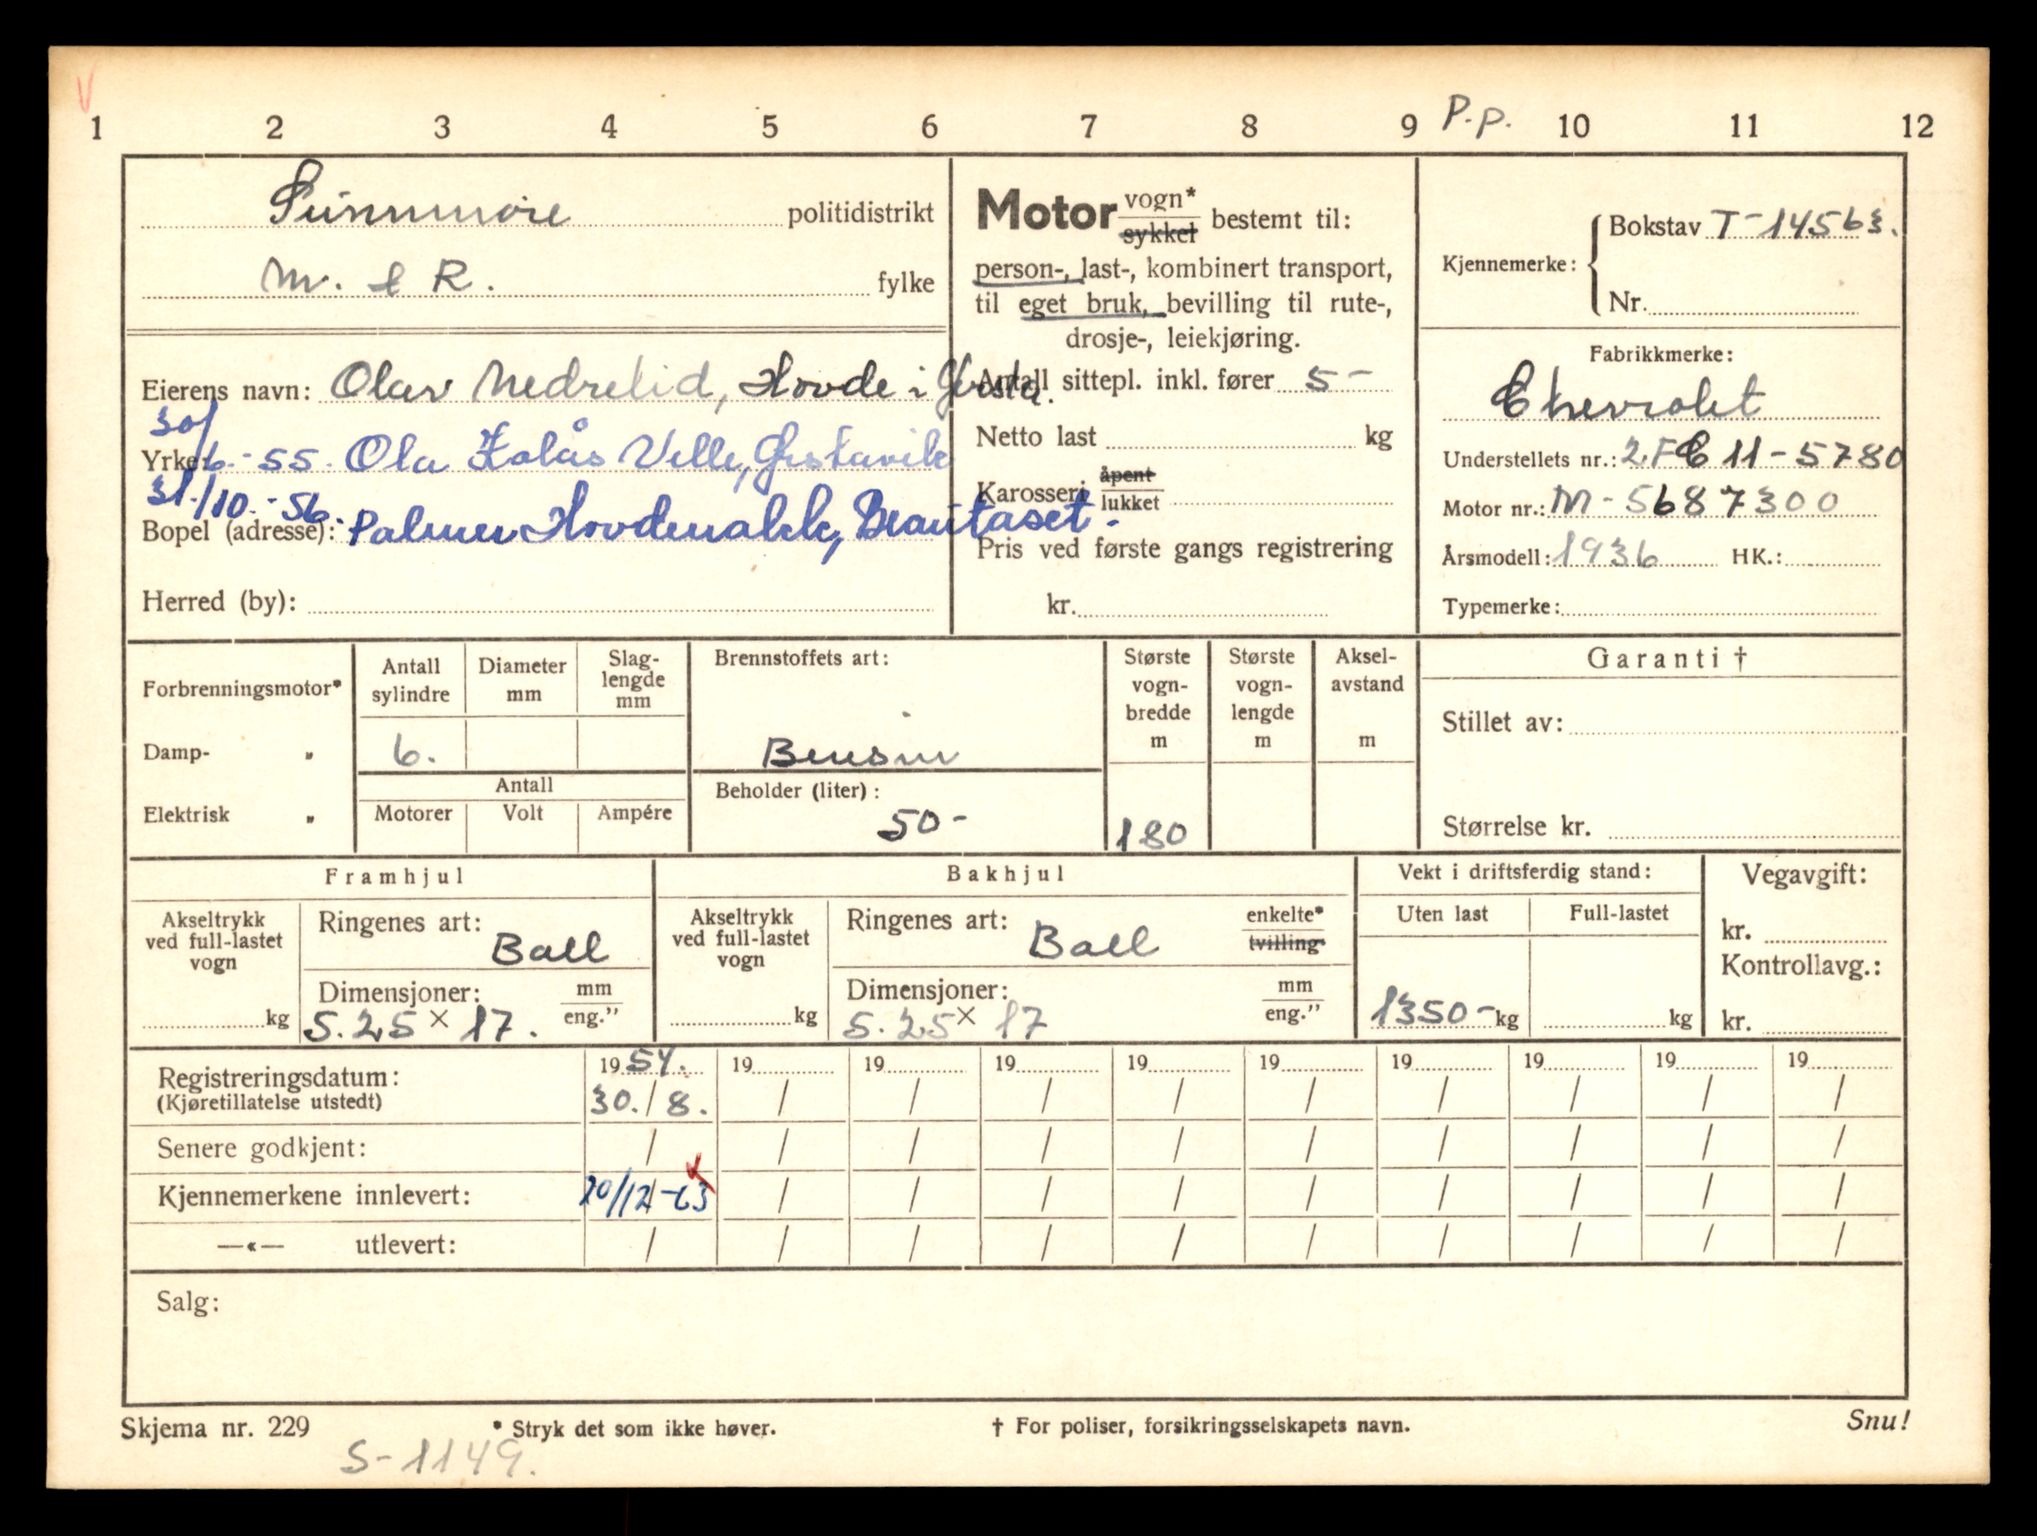 1 2 3 4 5 6 7 8 9 P.p. 10 11 12
Sunnmøre politidistrikt
M. & R. fylke
Eierens navn: Olav Nedrelid, Hovde i Ørsta.
30/6.-55. Ola Velle,
Yrke:
31./10.-56. Palmer Hovdenakk, Brautaset.
Bopel (adresse):
Herred (by):
Motor vogn* sykkel bestemt til:
person-, last-, kombinert transport,
til eget bruk, bevilling til rute-,
drosje-, leiekjøring.
Antall sittepl. inkl. fører 5-
Netto last kg
Karosseri åpent lukket
Pris ved første gangs registrering
kr.
Kjennemerke: Bokstav T-14563.
Nr.
Fabrikkmerke:
Chevrolet
Understellets nr.: 2FC11-5780
Motor nr.: M-5687300
Årsmodell: 1936 HK.:
Typemerke:
Forbrenningsmotor*
Damp- "
Elektrisk "
Antall sylindre
6.
Diameter mm
Slaglengde mm
Antall
Motorer Volt Ampére
Brennstoffets art:
Bensin
Beholder (liter):
50-
Største vogn-bredde m
180
Største vogn-lengde m
Aksel-avstand m
Garanti †
Stillet av:
Størrelse kr.
Framhjul
Akseltrykk ved full-lastet vogn
kg
Ringenes art:
Ball
Dimensjoner: mm eng."
5.25 × 17.
Bakhjul
Akseltrykk ved full-lastet vogn
kg
Ringenes art: enkelte* tvilling*
Ball
Dimensjoner: mm eng."
5.25 × 17
Vekt i driftsferdig stand:
Uten last Full-lastet
1350- kg kg
Vegavgift:
kr.
Kontrollavg.:
kr.
19 54. 19 19 19 19 19 19 19 19 19
Registreringsdatum: 30./8. / / / / / / / / /
(Kjøretillatelse utstedt)
Senere godkjent: / / / / / / / / / /
Kjennemerkene innlevert: 20/12-63 / / / / / / / / /
—«— utlevert: / / / / / / / / / /
Salg:
Skjema nr. 229 * Stryk det som ikke høver. † For poliser, forsikringsselskapets navn. Snu!
S-1149.